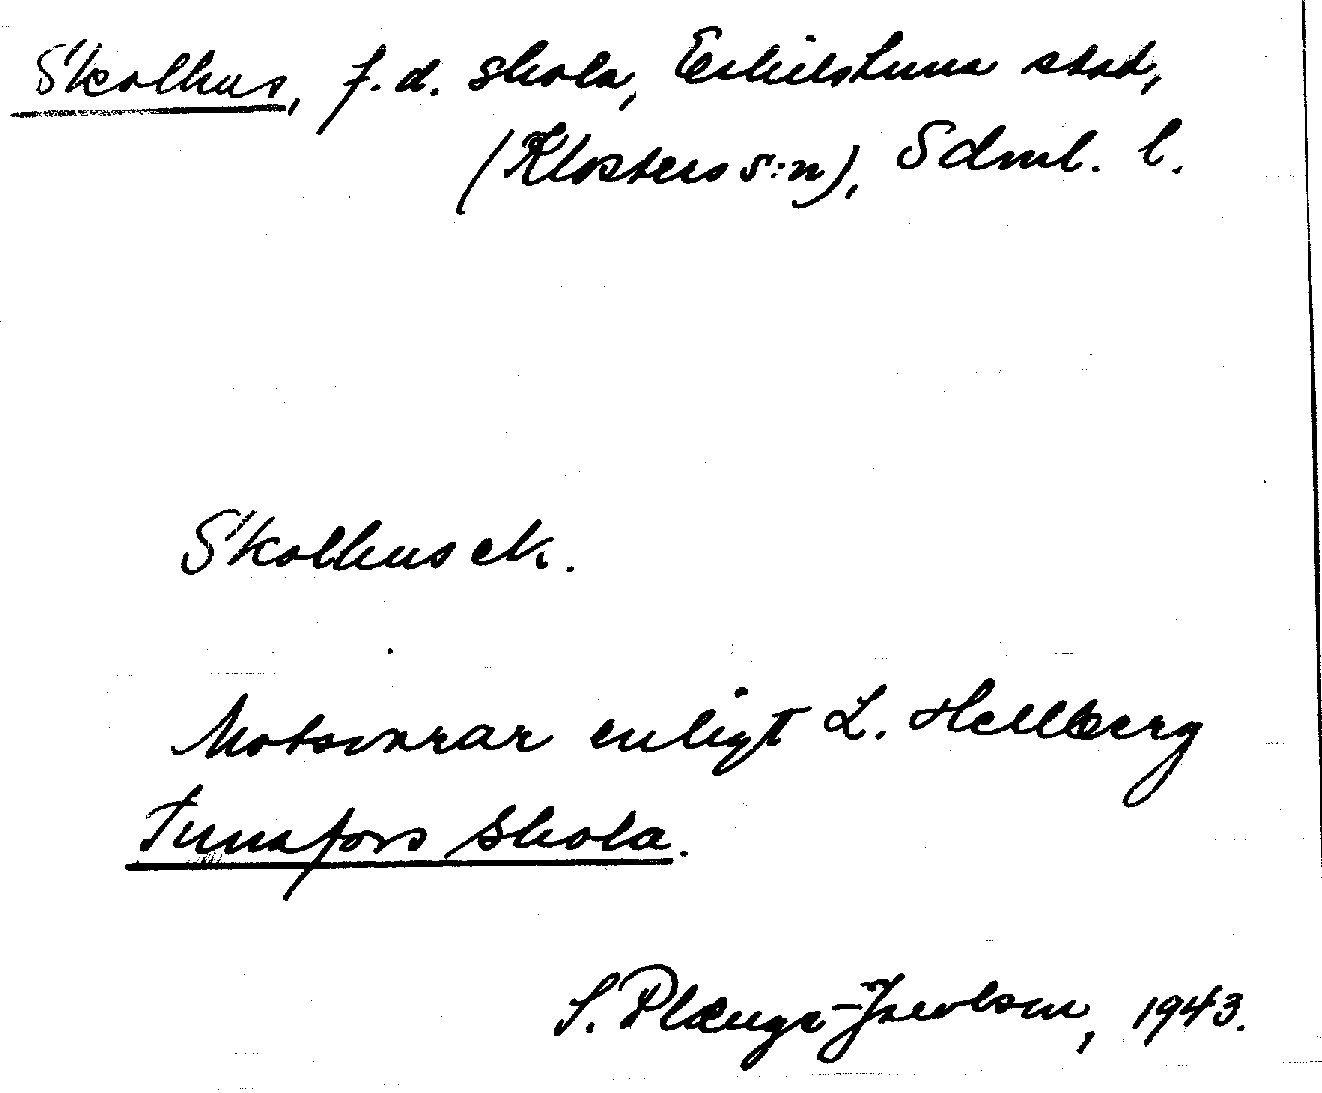 Skolhus, f.d. skola, Eskilstuna stad,
(Klosters s:n), Sdml. l.
Skolhus ek.
Motsvarar enligt L. Hellberg
Tunafors skola.
S. Plænge-Jacobson, 1943.